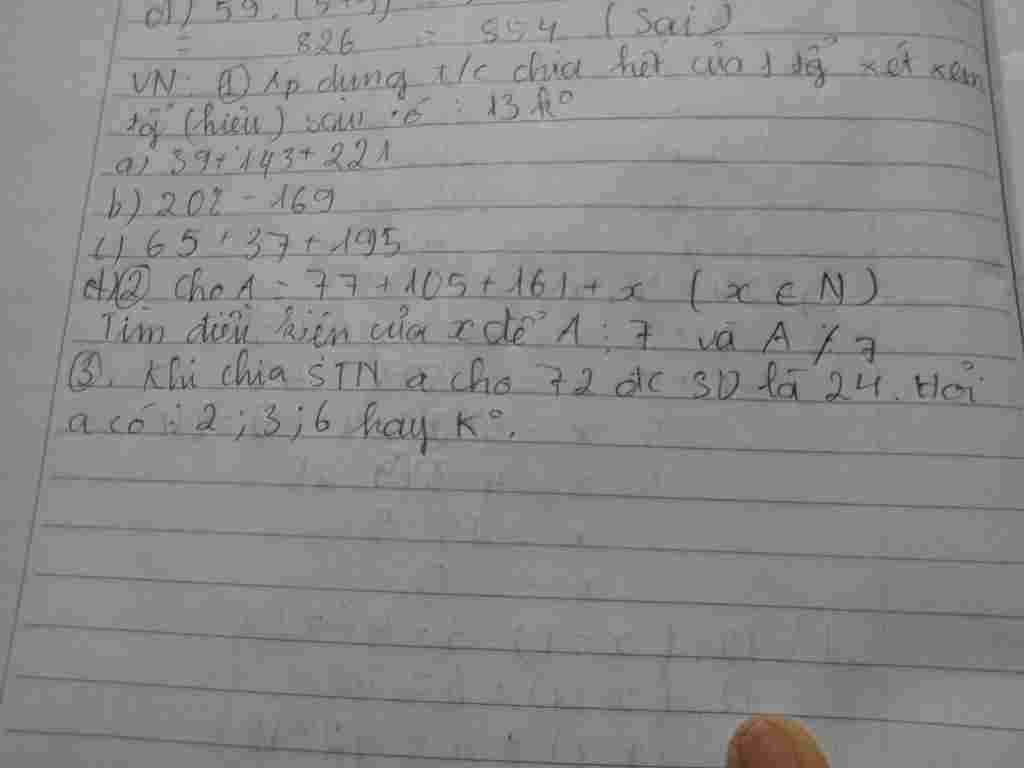 d) 59. (5+9)
= 826 = 894 (Sai)
VN: ① Áp dụng t/c chia hết của 1 tổng xét xem
tổng (hiệu) sau có ⋮ 13 k°
a) 39+143+221
b) 202 - 169
c) 65 + 37 + 195
② Cho A = 77+105+161+x (x ∈ N)
Tìm điều kiện của x để A ⋮ 7 và A ⋮̸ 7
③. Khi chia STN a cho 72 đc SD là 24. Hỏi
a có ⋮ 2 ; 3 ; 6 hay K°.